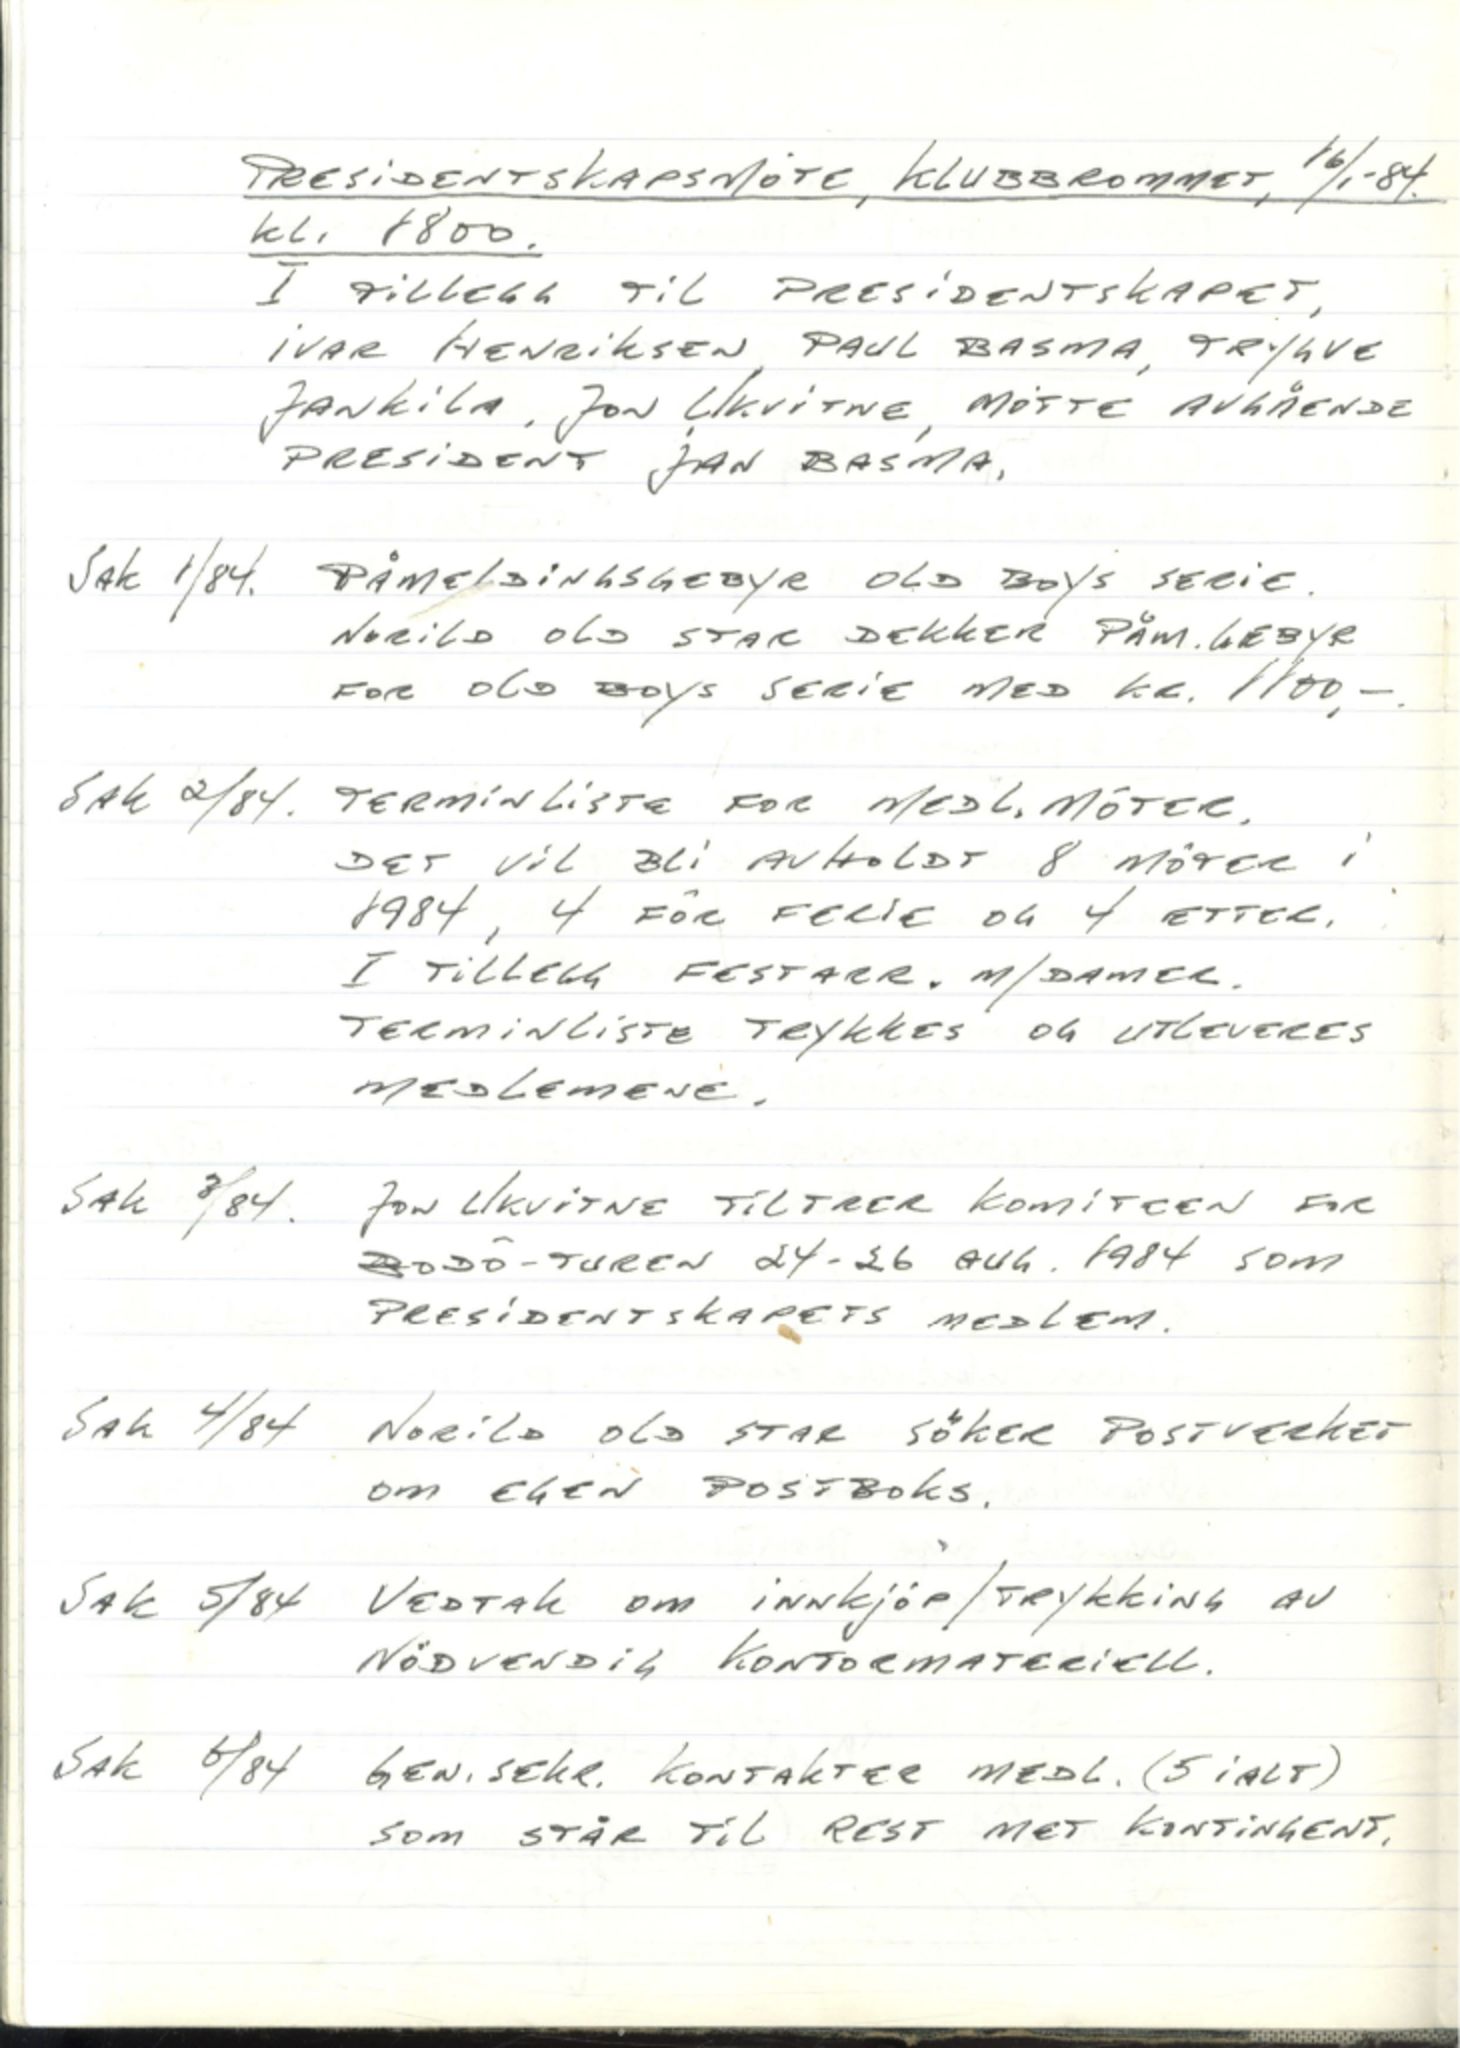 PRESIDENTSKAPSMÖTE, KLUBBROMMET, 16/1-84.
KL. 1800.
I TILLEGG TIL PRESIDENTSKAPET,
IVAR HENRIKSEN, PAUL BASMA, TRYGVE
JANKILA, JON UKVITNE, MÖTTE AVGÅENDE
PRESIDENT JAN BASMA.
SAK 1/84. PÅMELDINGSGEBYR OLD BOYS SERIE.
NORILD OLD STAR DEKKER PÅM.GEBYR
FOR OLD BOYS SERIE MED KR. 1100,-.
SAK 2/84. TERMINLISTE FOR MEDL. MÖTER.
DET VIL BLI AVHOLDT 8 MÖTER I
1984, 4 FÖR FERIE OG 4 ETTER.
I TILLEGG FESTARR. M/DAMER.
TERMINLISTE TRYKKES OG UTLEVERES
MEDLEMENE.
SAK 3/84. JON UKVITNE TILTRER KOMITEEN FOR
BODÖ-TUREN 24-26 AUG. 1984 SOM
PRESIDENTSKAPETS MEDLEM.
SAK 4/84 NORILD OLD STAR SÖKER POSTVERKET
OM EGEN POSTBOKS.
SAK 5/84 VEDTAK OM INNKJÖP/TRYKKING AV
NÖDVENDIG KONTORMATERIELL.
SAK 6/84 GEN. SEKR. KONTAKTER MEDL. (5 IALT)
SOM STÅR TIL REST MET KONTINGENT.